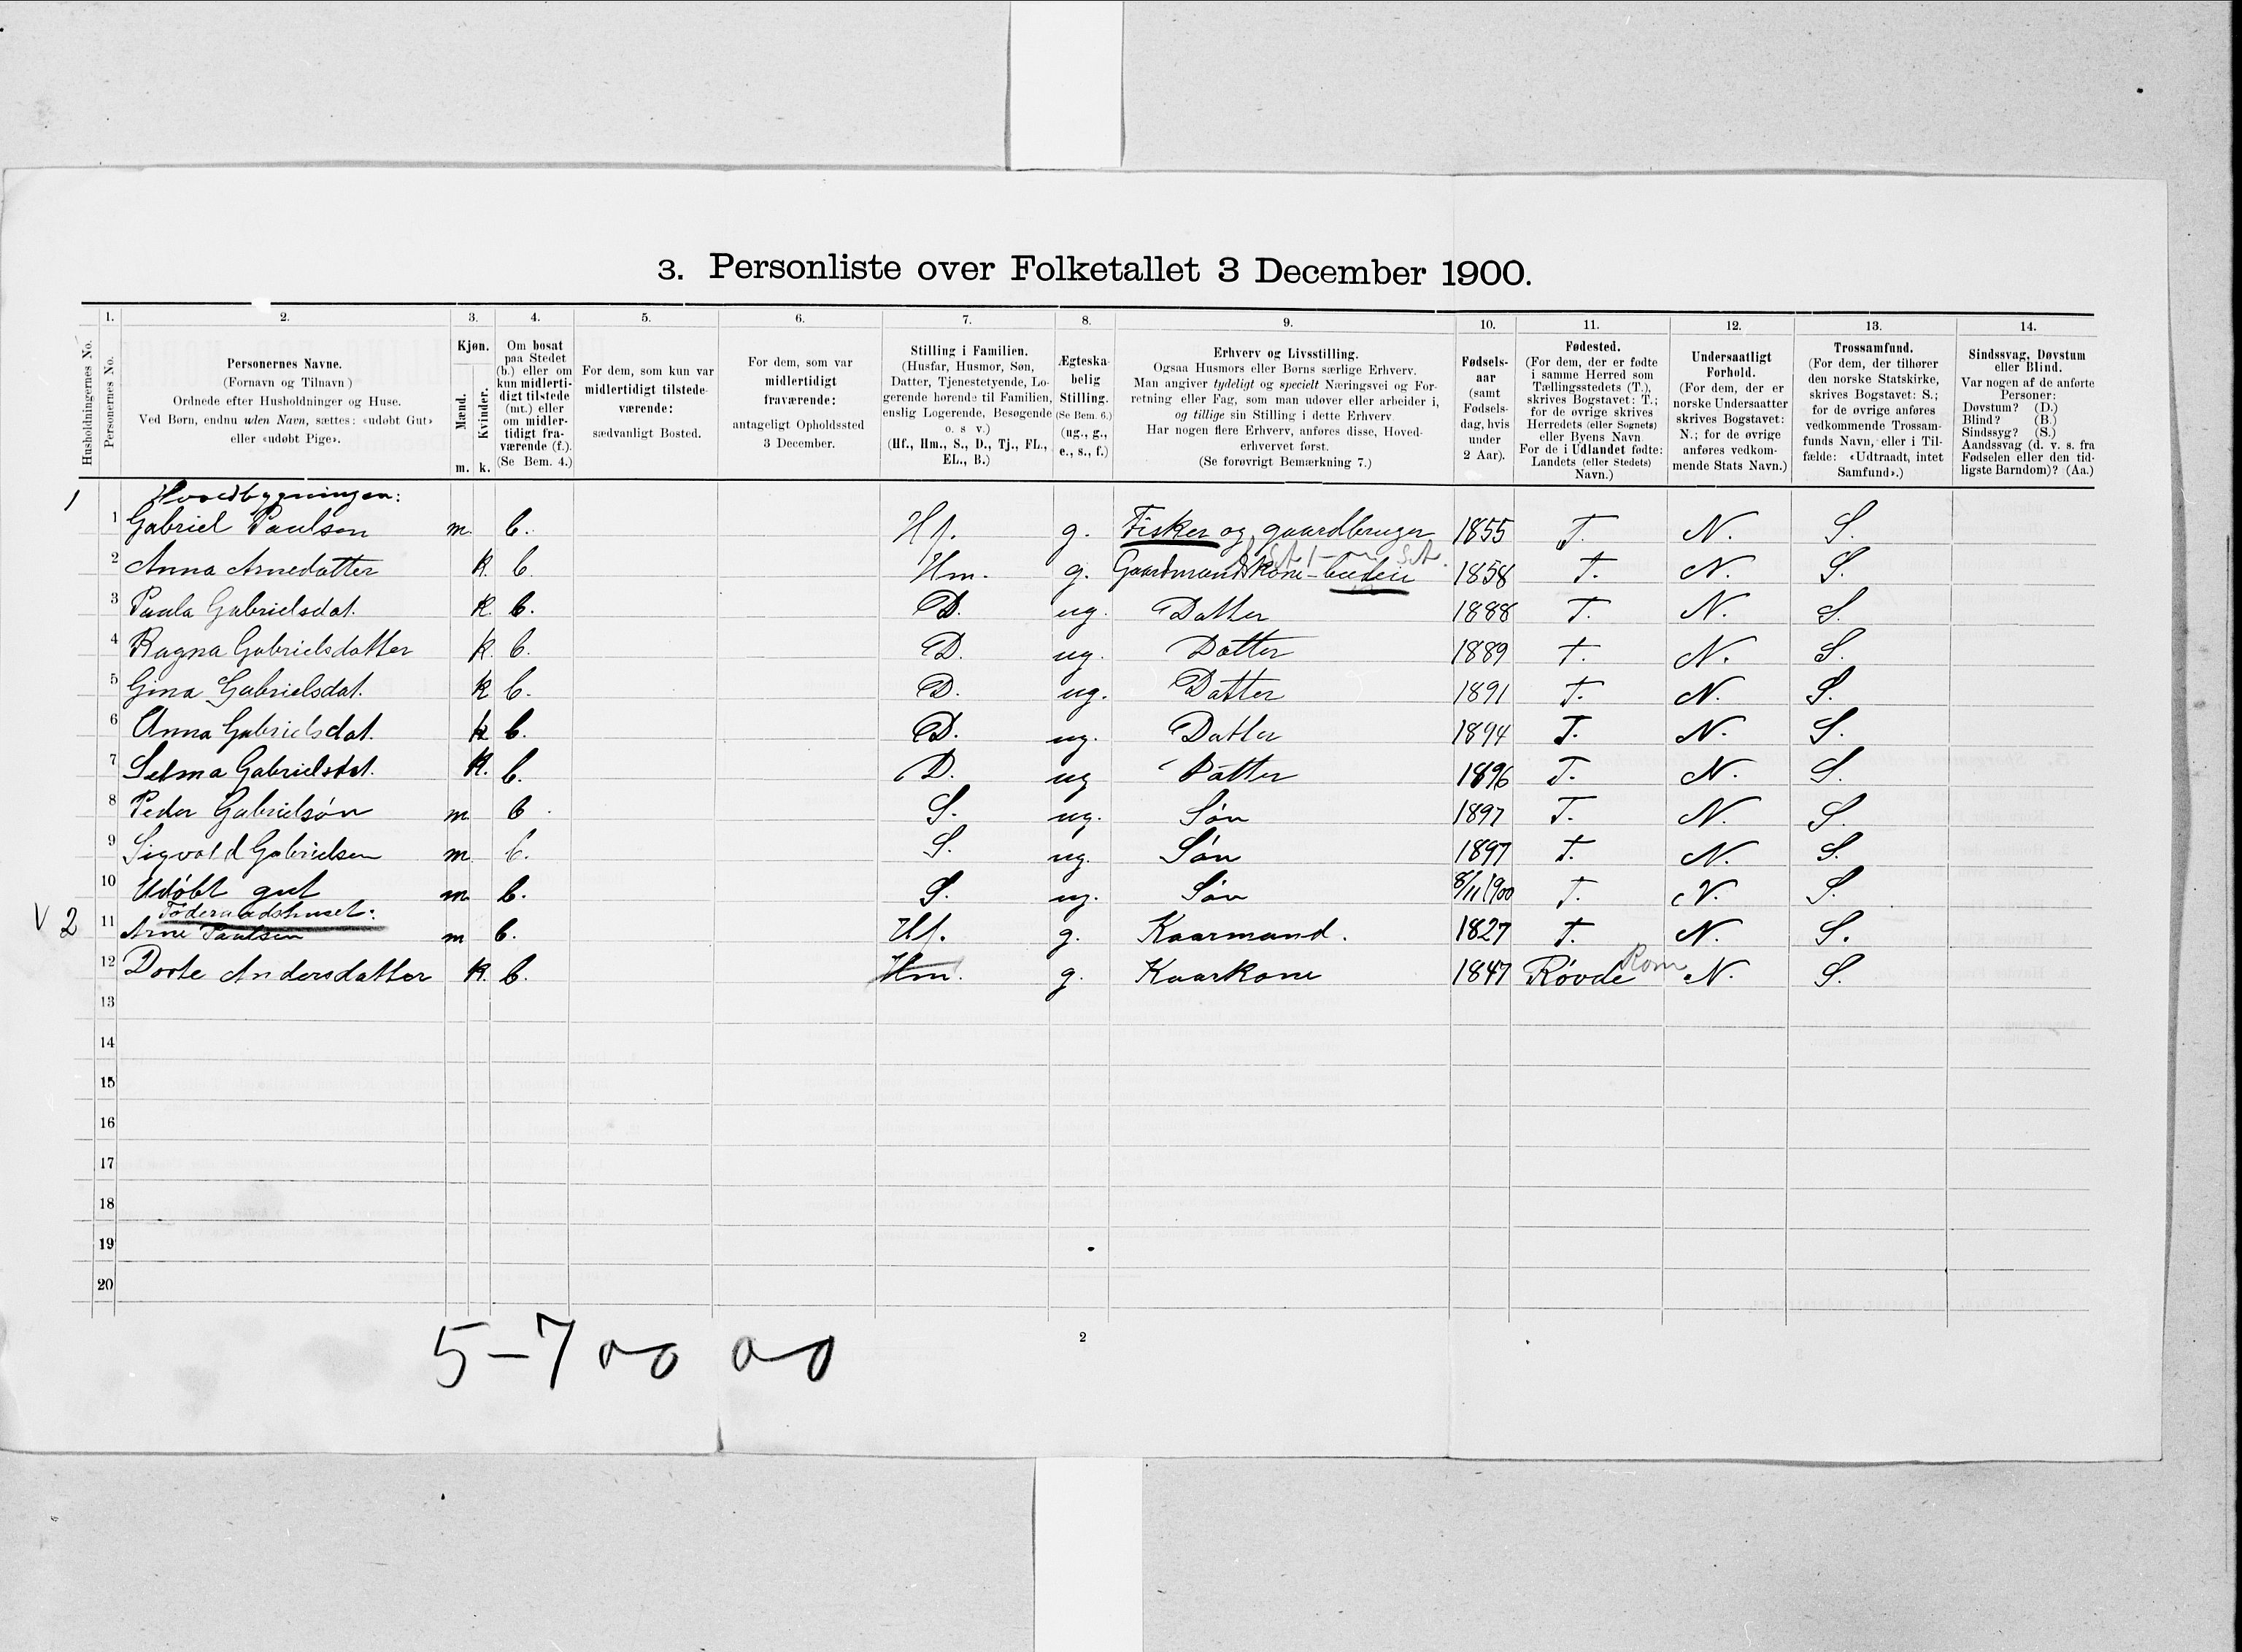 3. Personliste over Folketallet 3 December 1900.
1. 2. 3. 4. 5. 6. 7. 8. 9. 10. 11. 12. 13. 14.
Husholdningernes No.
Personernes No.
Personernes Navne.
(Fornavn og Tilnavn)
Ordnede efter Husholdninger og Huse.
Ved Børn, endnu uden Navn, sættes: «udøbt Gut»
eller «udøbt Pige».
Kjøn.
Mænd.
Kvinder.
m. k.
Om bosat
paa Stedet
(b.) eller om
kun midlerti-
digt tilstede
(mt.) eller
om midler-
tidigt fra-
værende (f.).
(Se Bem. 4.)
For dem, som kun var
midlertidigt tilstede-
værende:
sædvanligt Bosted.
For dem, som var
midlertidigt
fraværende:
antageligt Opholdssted
3 December.
Stilling i Familien.
(Husfar, Husmor, Søn,
Datter, Tjenestetyende, Lo-
gerende hørende til Familien,
enslig Logerende, Besøgende
o. s v.)
(Hf., Hm., S., D., Tj., FL.,
EL., B.)
Ægteska-
belig
Stilling.
(Se Bem. 6.)
(ug., g.,
e., s., f.)
Erhverv og Livsstilling.
Ogsaa Husmors eller Børns særlige Erhverv.
Man angiver tydeligt og specielt Næringsvei og For-
retning eller Fag, som man udøver eller arbeider i,
og tillige sin Stilling i dette Erhverv.
Har nogen flere Erhverv, anføres disse, Hoved-
erhvervet først.
(Se forøvrigt Bemærkning 7.)
Fødsels-
aar
(samt
Fødsels-
dag, hvis
under
2 Aar).
Fødested.
(For dem, der er fødte
i samme Herred som
Tællingsstedets (T.),
skrives Bogstavet: T.;
for de øvrige skrives
Herredets (eller Sognets)
eller Byens Navn
For de i Udlandet fødte:
Landets (eller Stedets)
Navn.)
Undersaatligt
Forhold.
(For dem, der er
norske Undersaatter
skrives Bogstavet:
N.; for de øvrige
anføres vedkom-
mende Stats Navn.)
Trossamfund.
(For dem, der tilhører
den norske Statskirke,
skrives Bogstavet: S.;
for de øvrige anføres
vedkommende Trossam-
funds Navn, eller i Til-
fælde: «Udtraadt, intet
Samfund».)
Sindssvag, Døvstum
eller Blind.
Var nogen af de anførte
Personer:
Døvstum? (D.)
Blind? (B.)
Sindssyg? (S.)
Aandssvag (d. v. s. fra
Fødselen eller den tid-
ligste Barndom)? (Aa.)
1 Hovedbygningen:
1 Gabriel Paulsen m. b. Hf. g. Fisker og gaardbruger 1855 T. N. S.
2 Anna Arnedatter k. b. Hm. g. Gaardmandskone-budeie 1858 T. N. S.
3 Paula Gabrielsdat. k. b. D. ug. Datter 1888 T. N. S.
4 Ragna Gabrielsdatter k. b. D. ug. Datter 1889 T. N. S.
5 Gina Gabrielsdat. k b. D. ug. Datter 1891 T. N. S.
6 Anna Gabrielsdat. k b. D. ug. Datter 1894 T. N. S.
7 Selma Gabrielsdat. k. b. D. ug Datter 1896 T. N. S.
8 Peder Gabrielsøn m b. S. ug. Søn 1897 T. N. S.
9 Sigvald Gabrielsen m b. S. ug. Søn 1897 T. N. S.
10 Udøbt gut m b. S. ug. Søn 8/11 1900 T. N. S.
Føderaadshuset:
V 2 11 Arne Paulsen m b. Hf. g. Kaarmand. 1827 T. N. S.
12 Dorte Andersdatter k. b. Hm. g. Kaarkone 1847 Røvde Rom N. S.
13
14
15
16
17
18
19
20
5-7
2